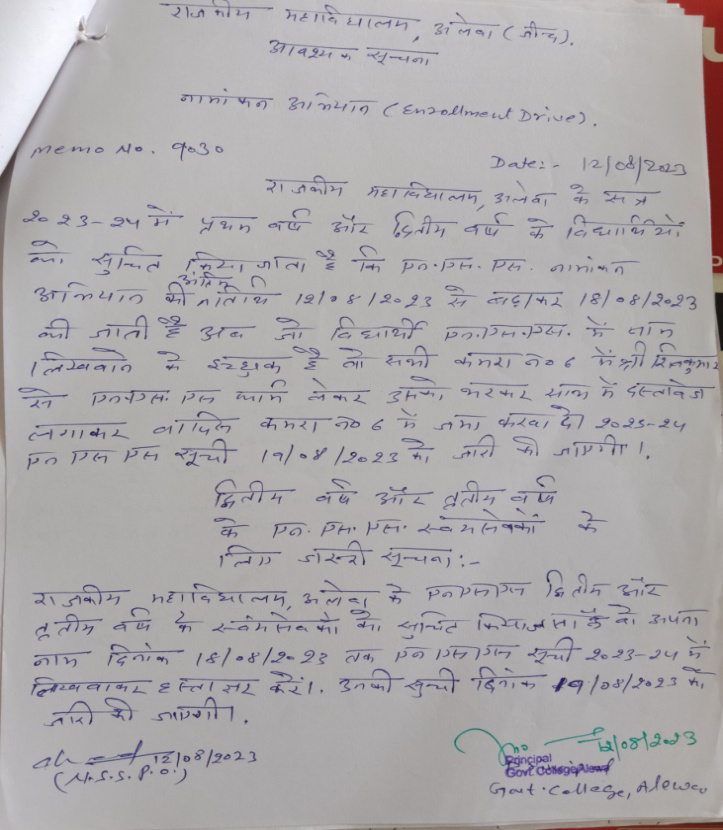 राजकीय महाविद्यालय, अलेवा (जीन्द).
आवश्यक सूचना
नामांकन अभियान (Enrollment Drive).
Memo No. 9030
Date:- 12/08/2023
राजकीय महाविद्यालय, अलेवा के सत्र
2023-24 में प्रथम वर्ष और द्वितीय वर्ष के विद्यार्थियों
को सुचित किया जाता है कि एन.एस.एस. नामांकन
अंतिम
अभियान की तिथि 12/08/2023 से बढ़ाकर 18/08/2023
की जाती है अब जो विद्यार्थी एन.एस.एस. में नाम
लिखवाने के इच्छुक है वो सभी कमरा न० 6 में श्री
से एन.एस.एस फार्म लेकर उसको भरकर साथ में दस्तावेज
लगाकर वापिस कमरा न० 6 में जमा करवा दे। 2023-24
एन एस एस सूची 19/08/2023 को जारी की जाएगी।.
द्वितीय वर्ष और तृतीय वर्ष
के एन. एस. एस. स्वंमसेवकों के
लिए जरूरी सूचना:-
राजकीय महाविद्यालय, अलेवा के एनएसएस द्वितीय और
तृतीय वर्ष के स्वंमसेवकों को सुचित किया जाता है वो अपना
नाम दिनांक 18/08/2023 तक एन एस एस सूची 2023-24 में
लिखवाकर हस्ताक्षर करें।. उनकी सुची दिनांक 19/08/2023 को
जारी की जाएगी।.
12/08/2023
(N.S.S.P.O.)
12/08/2023
Principal
Govt. College, Alewa
Govt. College, Alewa